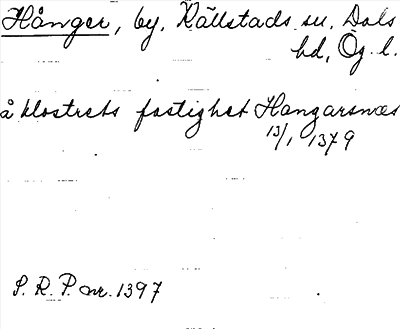 Hånger, by, Källstads sn, Dals
hd, Ög. l.
å klostrets fastighet Hangarsnæs
13/1 1379
S. R. P. nr. 1397